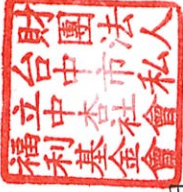 財團法人
台中市私
立中杏社會
福利基金會